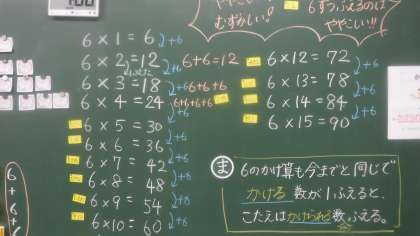 ややこしい
むずかしい!!
6ずつふえるのは
ややこしい!!
6×1=6
+6
6×2=12
6+6=12
+6
6×3=18
6+6+6
+6
6×4=24
6+6+6+6
+6
6×5=30
+6
6×6=36
+6
6×7=42
+6
6×8=48
+6
6×9=54
+6
6×10=60
6×12=72
+6
6×13=78
+6
6×14=84
+6
6×15=90
ま
6のかけ算も今までと同じで
かける数が1ふえると、
こたえはかけられる数ふえる。
6+6+6